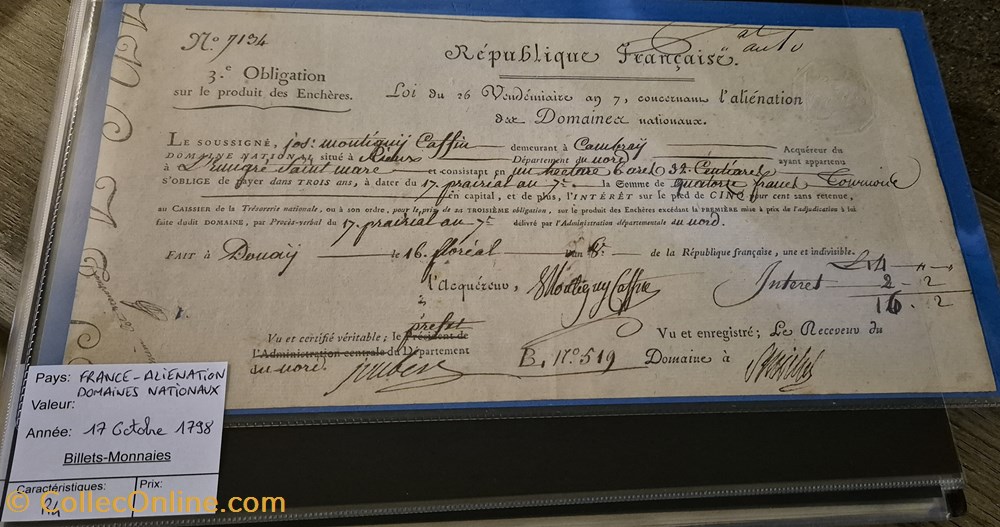 N.º 7134
République Française.
3.e Obligation
sur le produit des Enchères.
Loi du 26 Vendémiaire an 7, concernant l'aliénation
des Domaines nationaux.
LE SOUSSIGNÉ, Jos: Montigny Caffin demeurant à Cambray Acquéreur du
DOMAINE NATIONAL situé à Rieux Département du nord ayant appartenu
à et consistant en un hectare 6 ares 32 Centiares
S'OBLIGE de payer DANS TROIS ANS, à dater du 17. prairial an 7.e la somme de quatorze francs
en capital, et de plus, l'INTÉRÊT sur le pied de CINQ pour cent sans retenue,
au CAISSIER de la Trésorerie nationale, ou à son ordre, pour le prix de sa TROISIÈME obligation, sur le produit des Enchères excédant la PREMIÈRE mise à prix de l'adjudication à lui
faite dudit DOMAINE, par Procès-verbal du 17. prairial an 7.e délivré par l'Administration départementale du nord.
FAIT à Douay le 16. floréal an 8. de la République française, une et indivisible.
l'Acquéreur, JMontigny Caffin
14
Interet 2 - 2
16 . 2
prefet
Vu et certifié véritable; le Président de
l'Administration centrale du Département
du nord.
B. N.º 519
Vu et enregistré; Le Receveur du
Domaine à
Pays: FRANCE - ALIÉNATION
DOMAINES NATIONAUX
Valeur:
Année: 17 Octobre 1798
Billets-Monnaies
Caractéristiques:
Prix:
R4
© CollecOnline.com